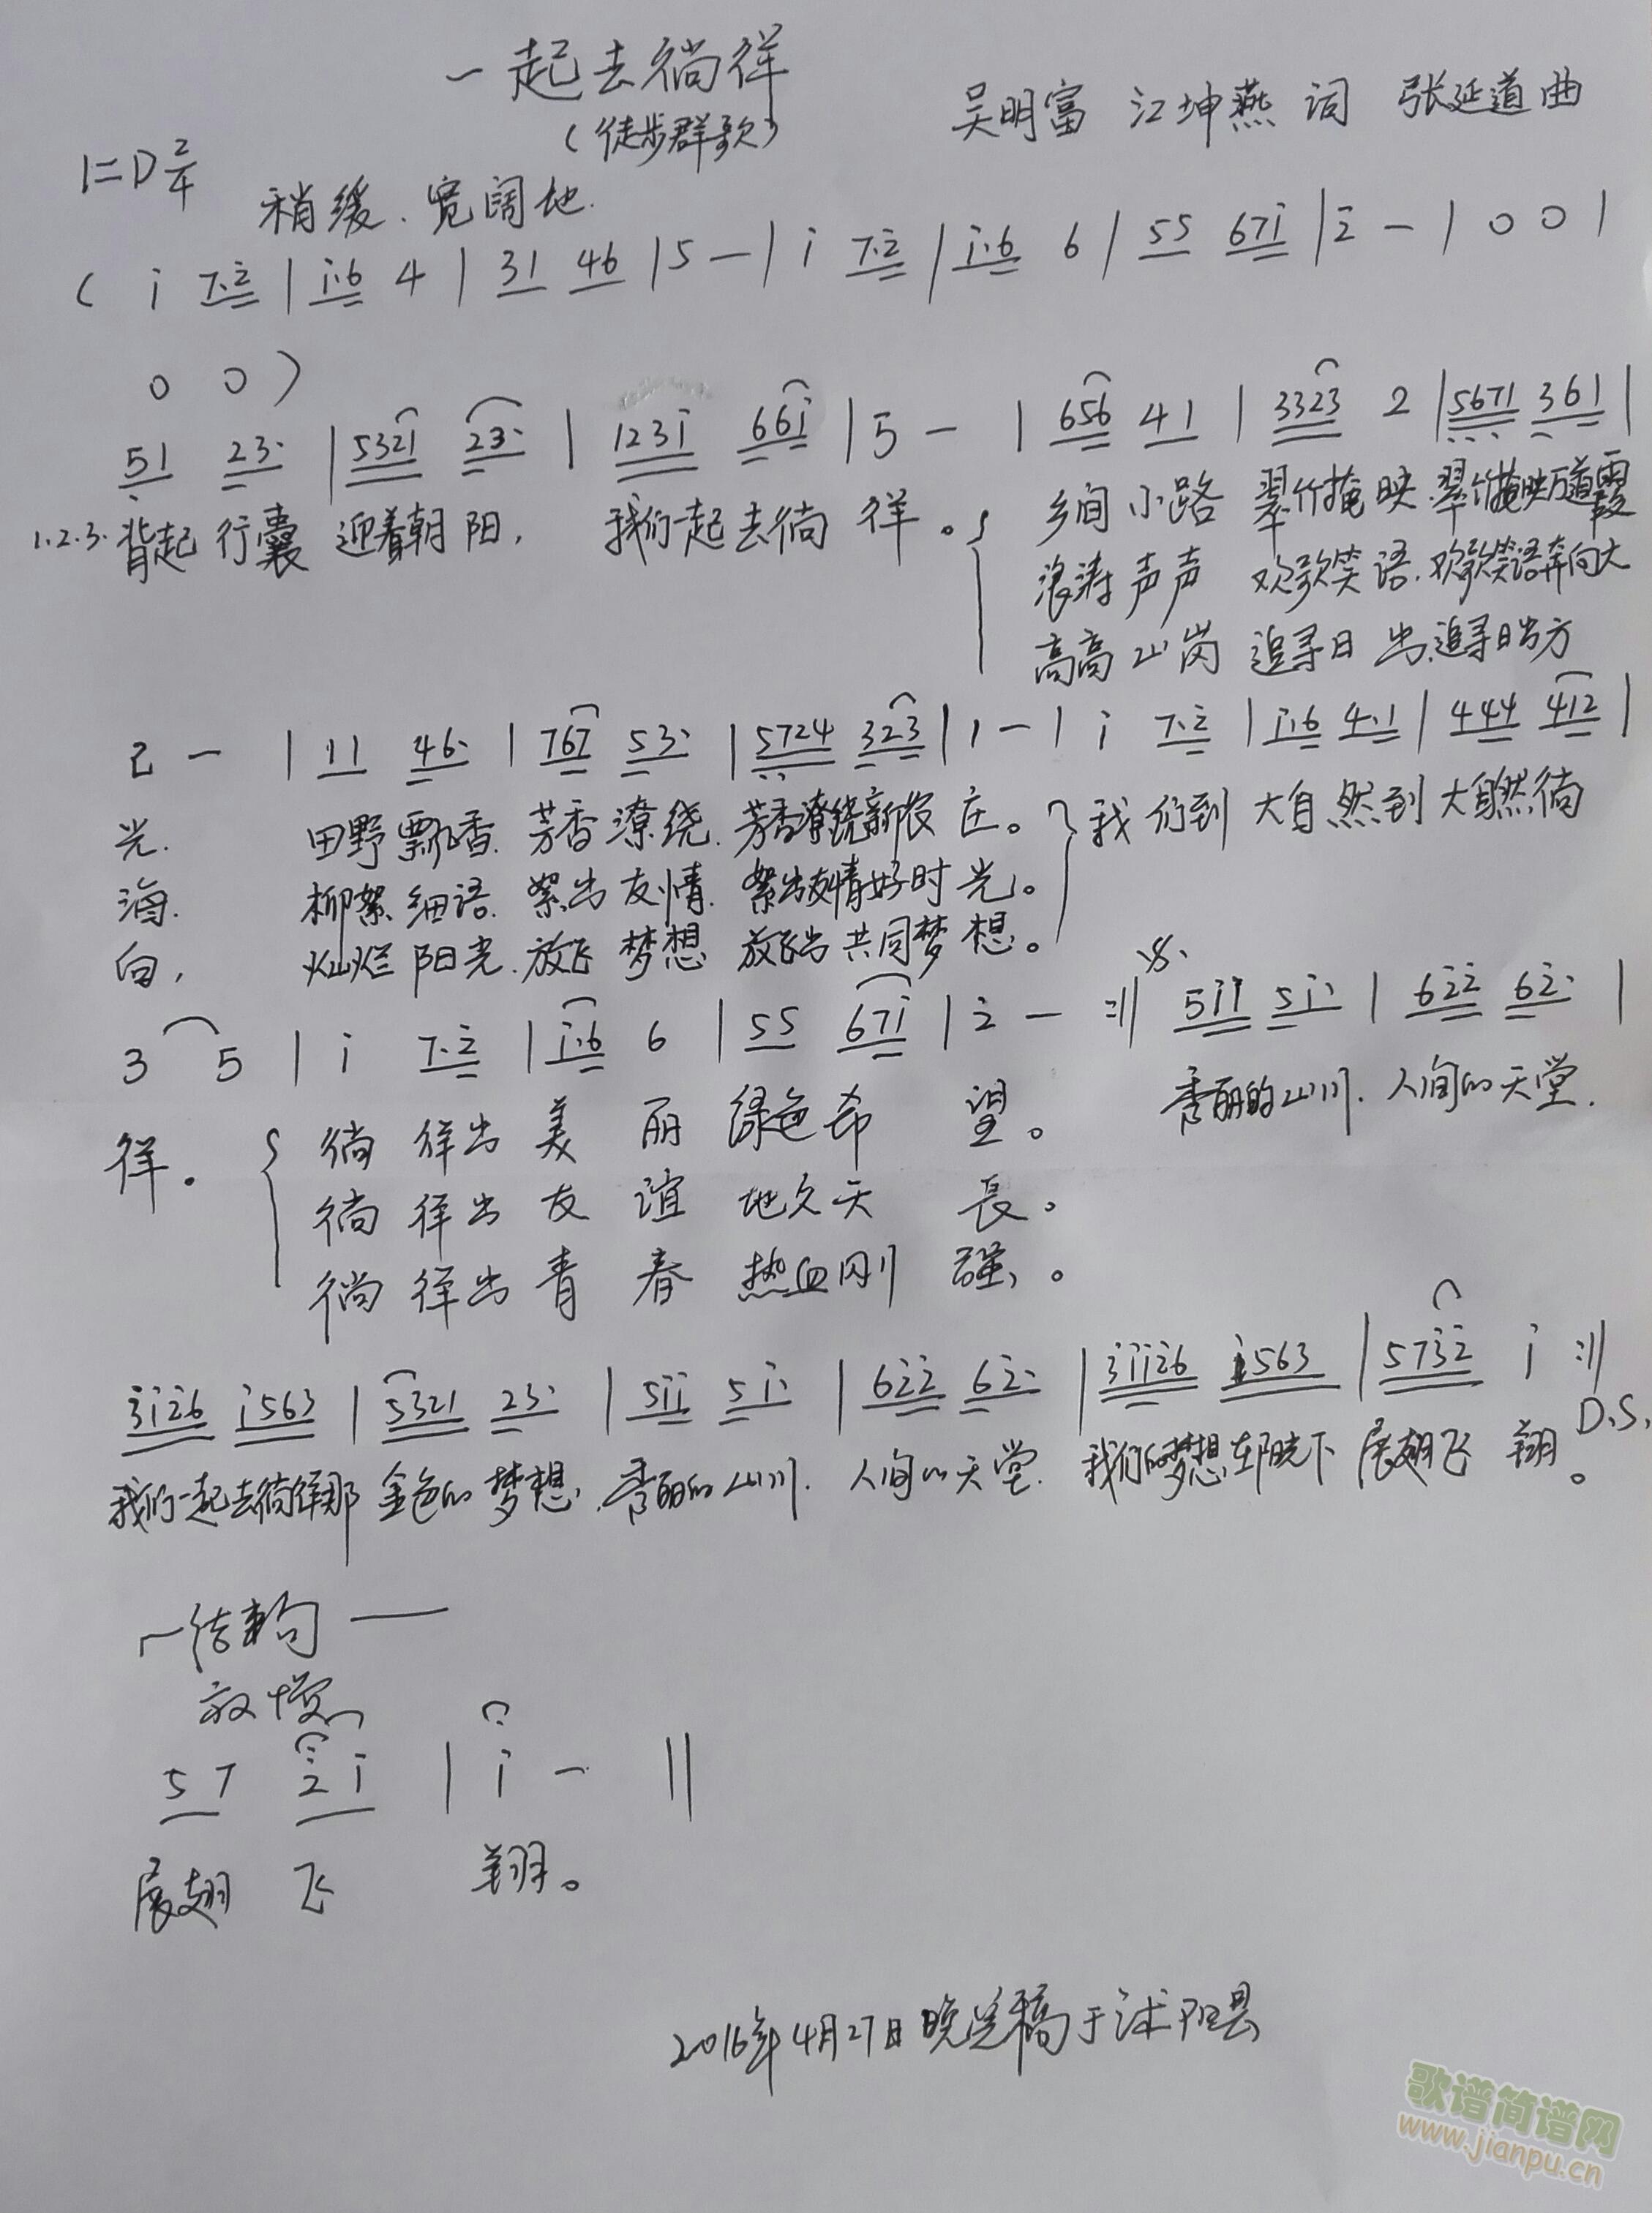 一起去徜徉
(徒步群歌)
吴明富 江坤燕 词 张延道曲
1=D 2/4
稍缓、宽阔地.
( i 7·2 | i·6 4 | 31 46 | 5 — | i 7·2 | i·6 6 | 55 67i | 2 — | 0 0 |
0 0 )
51 23· | 5321 23· | 123i 66i | 5 — | 656 41 | 3323 2 | 5671 361 |
1.2.3. 背起 行囊 迎着朝 阳, 我们一起去徜 徉。 乡间 小路 翠竹掩 映.翠竹掩映万道霞
浪涛 声声 欢歌笑 语.欢歌笑语奔向大
高高 山岗 追寻日 出.追寻日出方
2 — | 11 46· | 767 53· | 5724 323 | 1 — | i 7·2 | i·6 4·1 | 444 412 |
光. 田野飘香. 芳香潦绕. 芳香潦绕新农 庄。 我 们到 大自 然到 大自然徜
海. 柳絮 细语. 絮出 友情. 絮出友情好时 光。
向, 灿烂 阳光.放飞 梦想 放飞出共同梦 想。
3 5 | i 7·2 | i·6 6 | 55 67i | 2 — :|| 5ii 5i· | 622 62· |
徉。 徜 徉出 美 丽 绿色希 望。 秀丽的山川. 人间的天堂.
徜 徉出 友 谊 地久天 長。
徜 徉出 青 春 热血刚 强。
3i26 i563 | 5321 23· | 5ii 5i· | 622 62· | 3ii26 i563 | 5732 i :||
D.S.
我们一起去徜徉那 金色的 梦想.秀丽的 山川. 人间的天堂. 我们的梦想在阳光下 展翅飞 翔。
结束句
放慢
57 2i | i — ||
展翅 飞 翔。
2016年4月27日晚完稿于沭阳县
歌谱简谱网
www.jianpu.cn